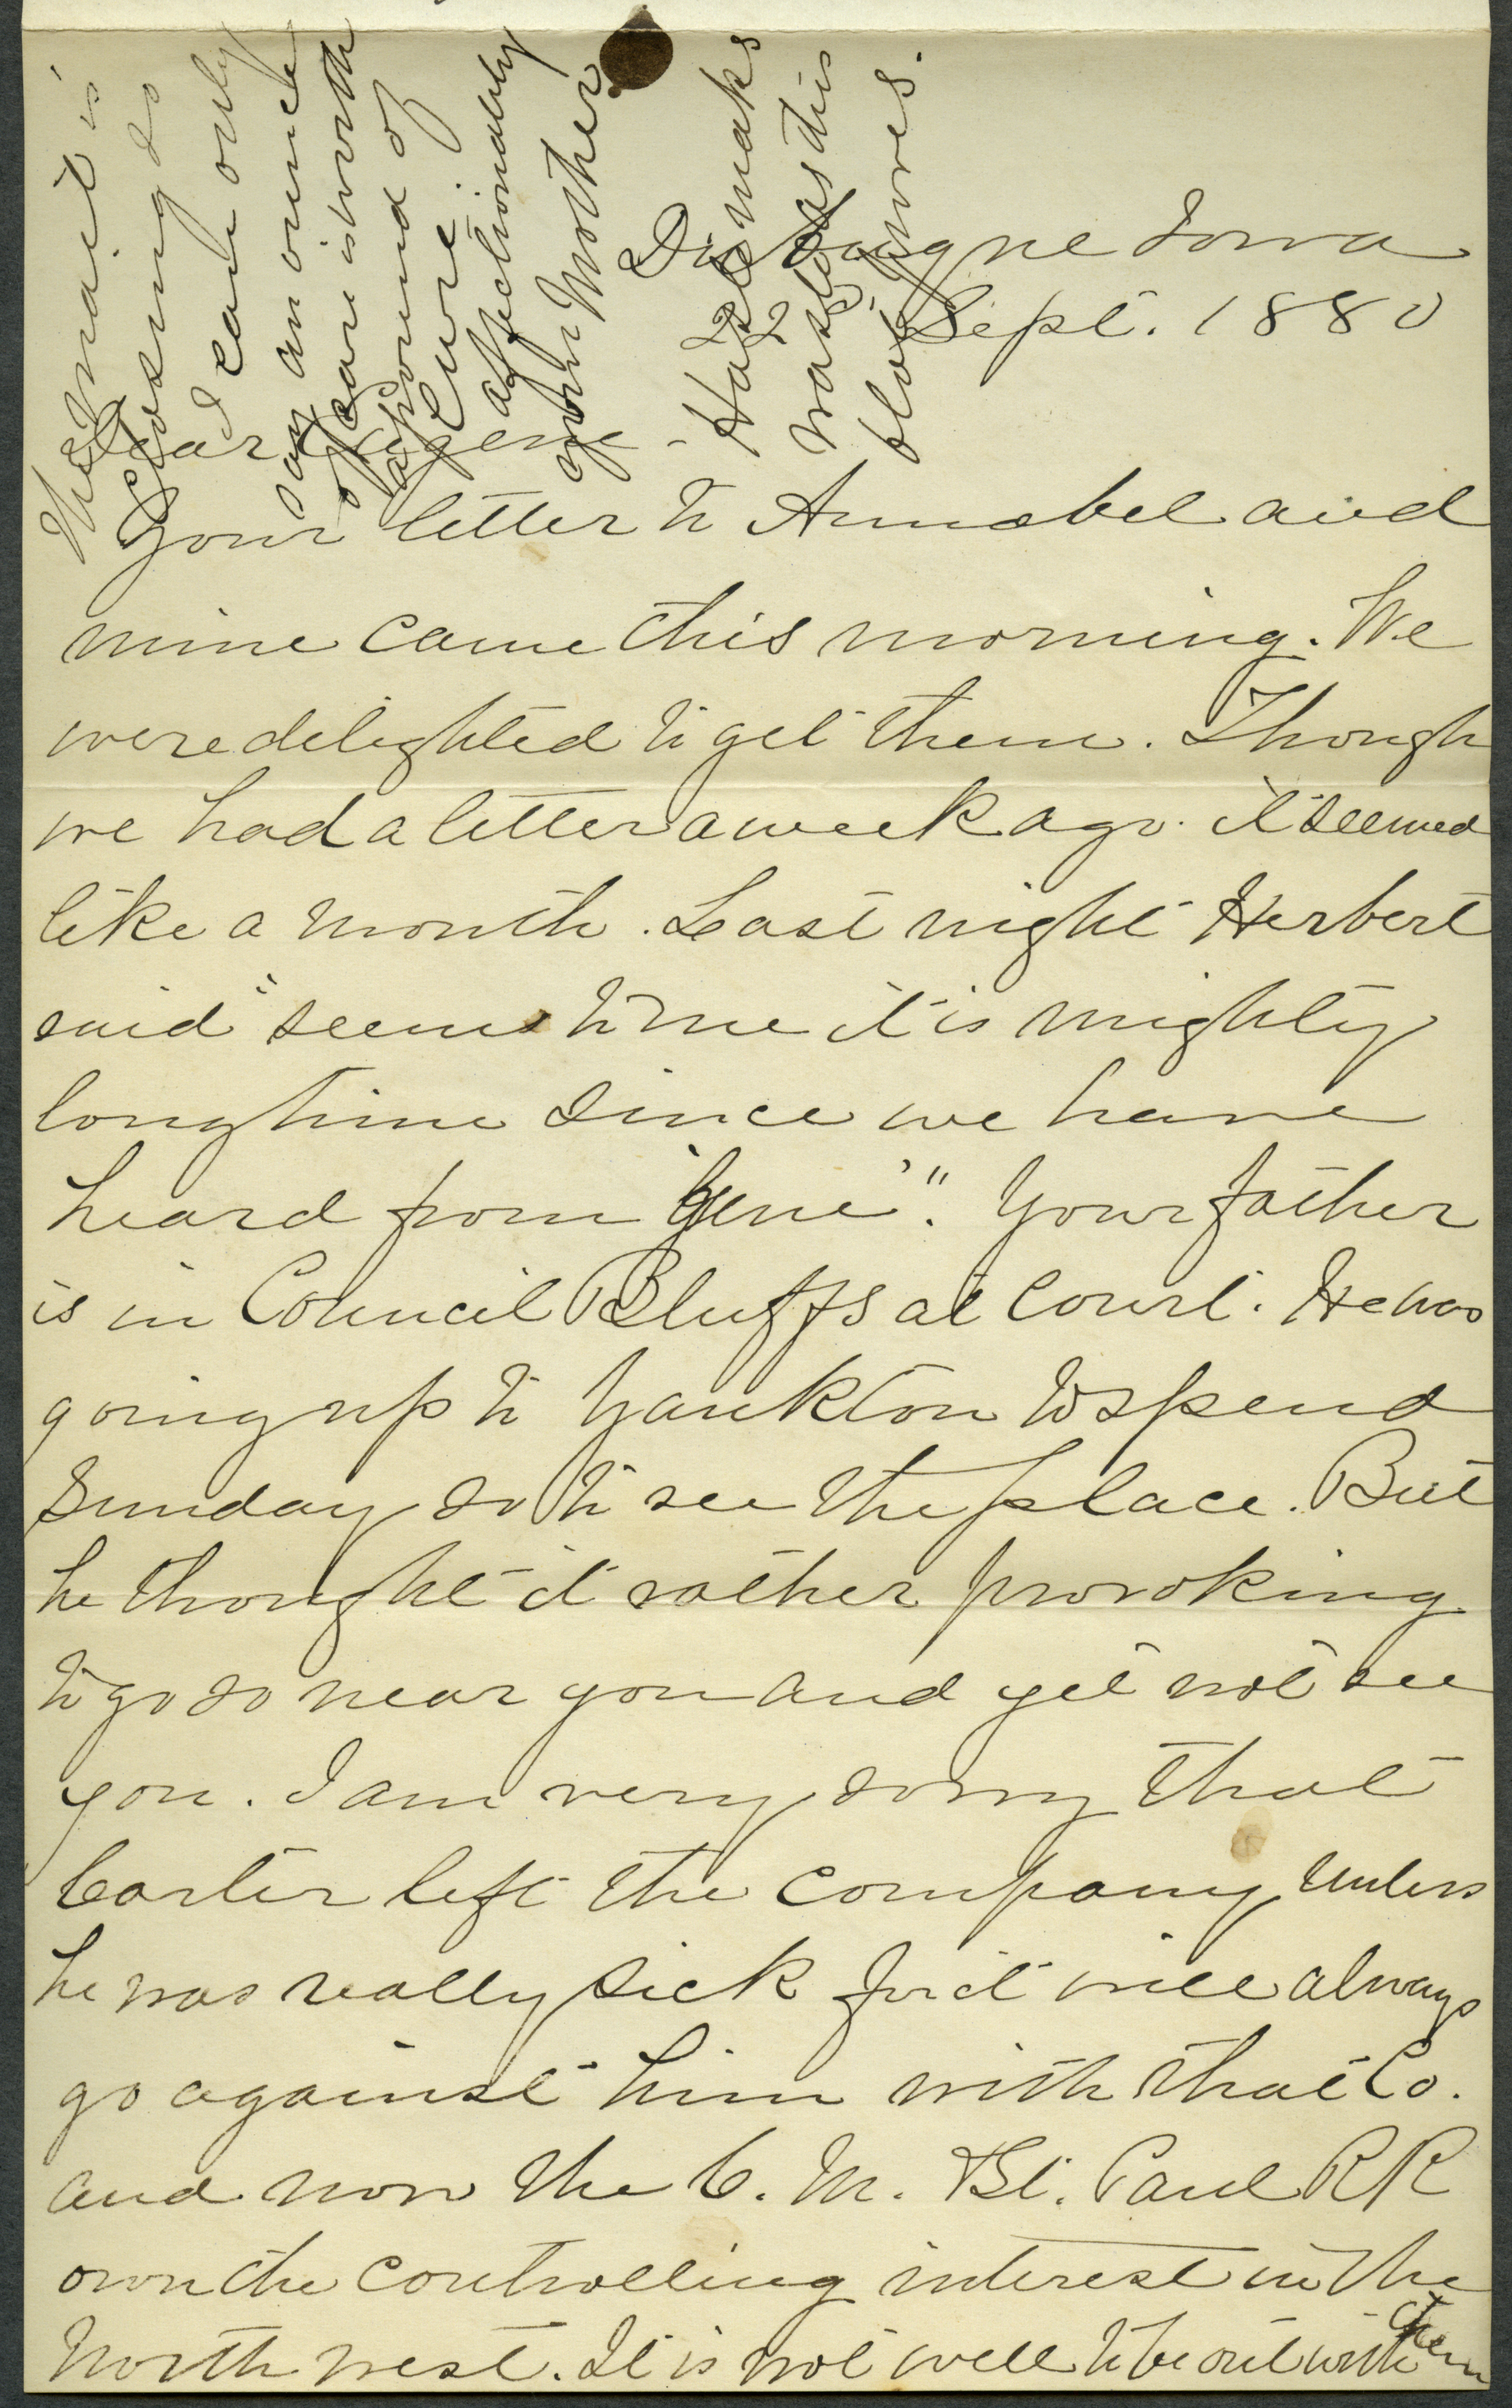 Dubuque Iowa
22 Sept. 1880
Dear Eugene -
Your letter to Annabel and
mine came this morning. We
were delighted to get them. Though
we had a letter a week ago. it seemed
like a month. Last night Herbert
said "seems to me it is mighty
long time since we have
heard from 'Gene'." Your father
is in Council Bluffs at Court. He was
going up to Yankton to spend
Sunday so to see the place. But
he thought it rather provoking
to go so near you and yet not see
you. I am very sorry that
Carter left the company unless
he was really sick for it will always
go against him with that Co.
and now the C. M. & St. Paul RR
own the controlling interest in the
North west. It is not well to be out with them
The mail is
closing so
I can only
say an ounce
of care is worth
a pound of
cure.
affectionately
your Mother
Haste makes
waste as this
blot proves.